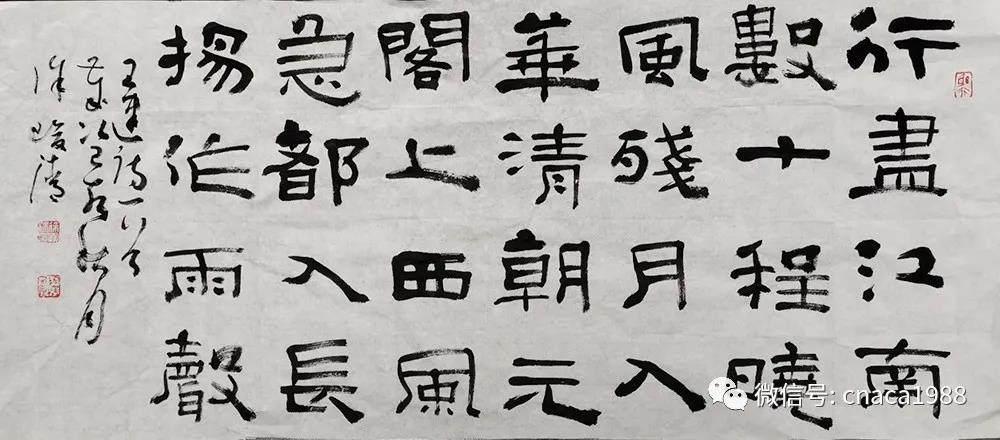 行盡江南
數十程曉
風殘月入
華清朝元
閣上西風
急都入長
揚作雨聲
王建詩一首
歲次己亥秋月
清
微信号: cnaca1988